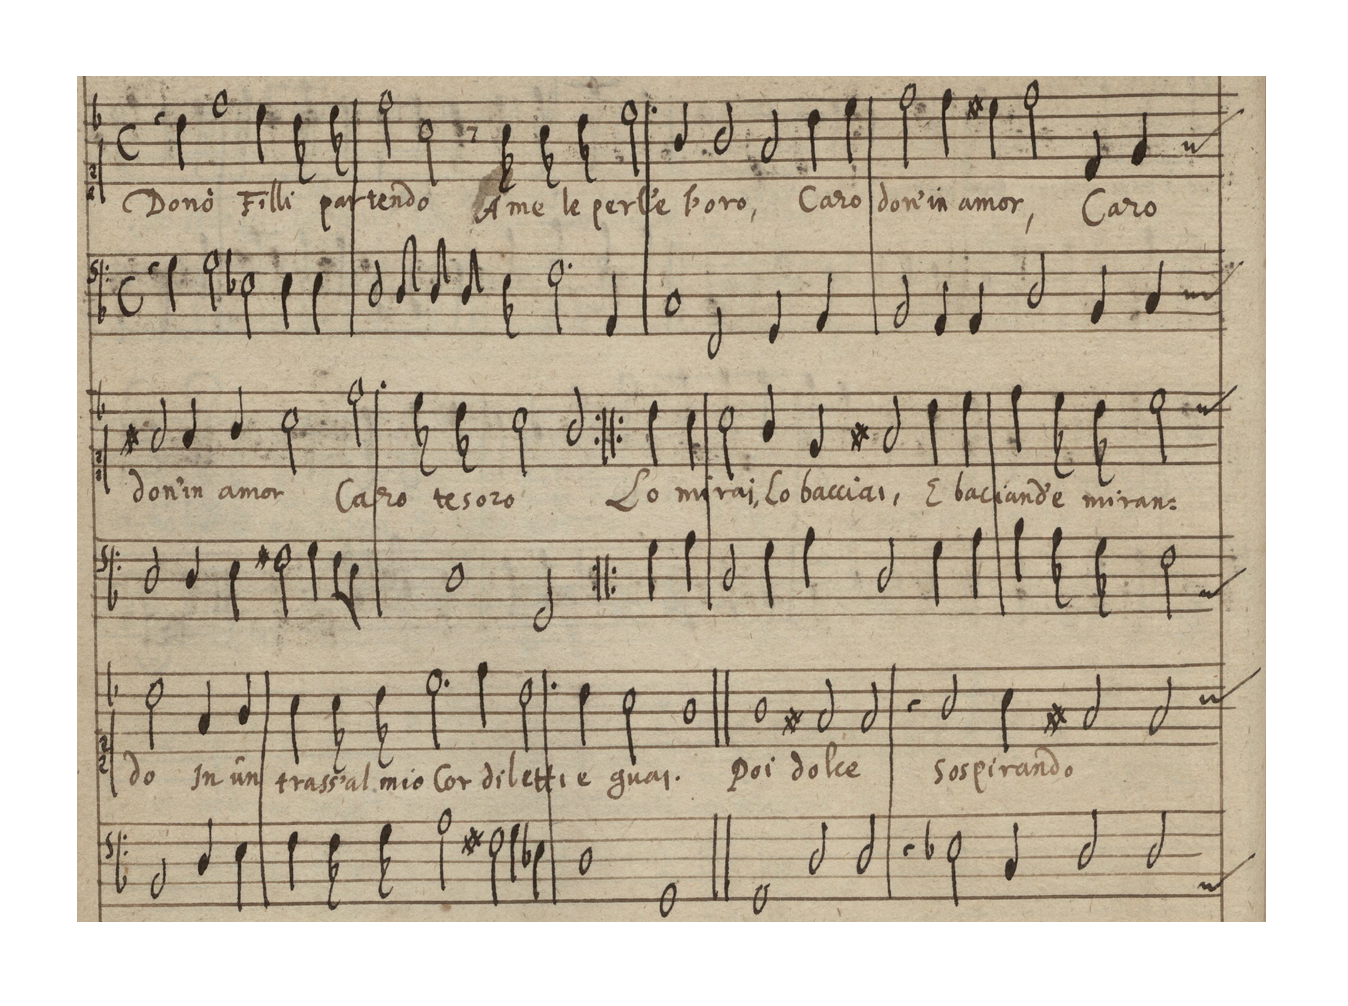 Donò Filli partendo A me le perl'e l'oro, Caro don'in amor, Caro
don'in amor Caro tesoro Lo mirai, Lo bacciai, E baciand'e miran:
do In un trass'al mio Cor diletti e guai. Poi dolce sospirando